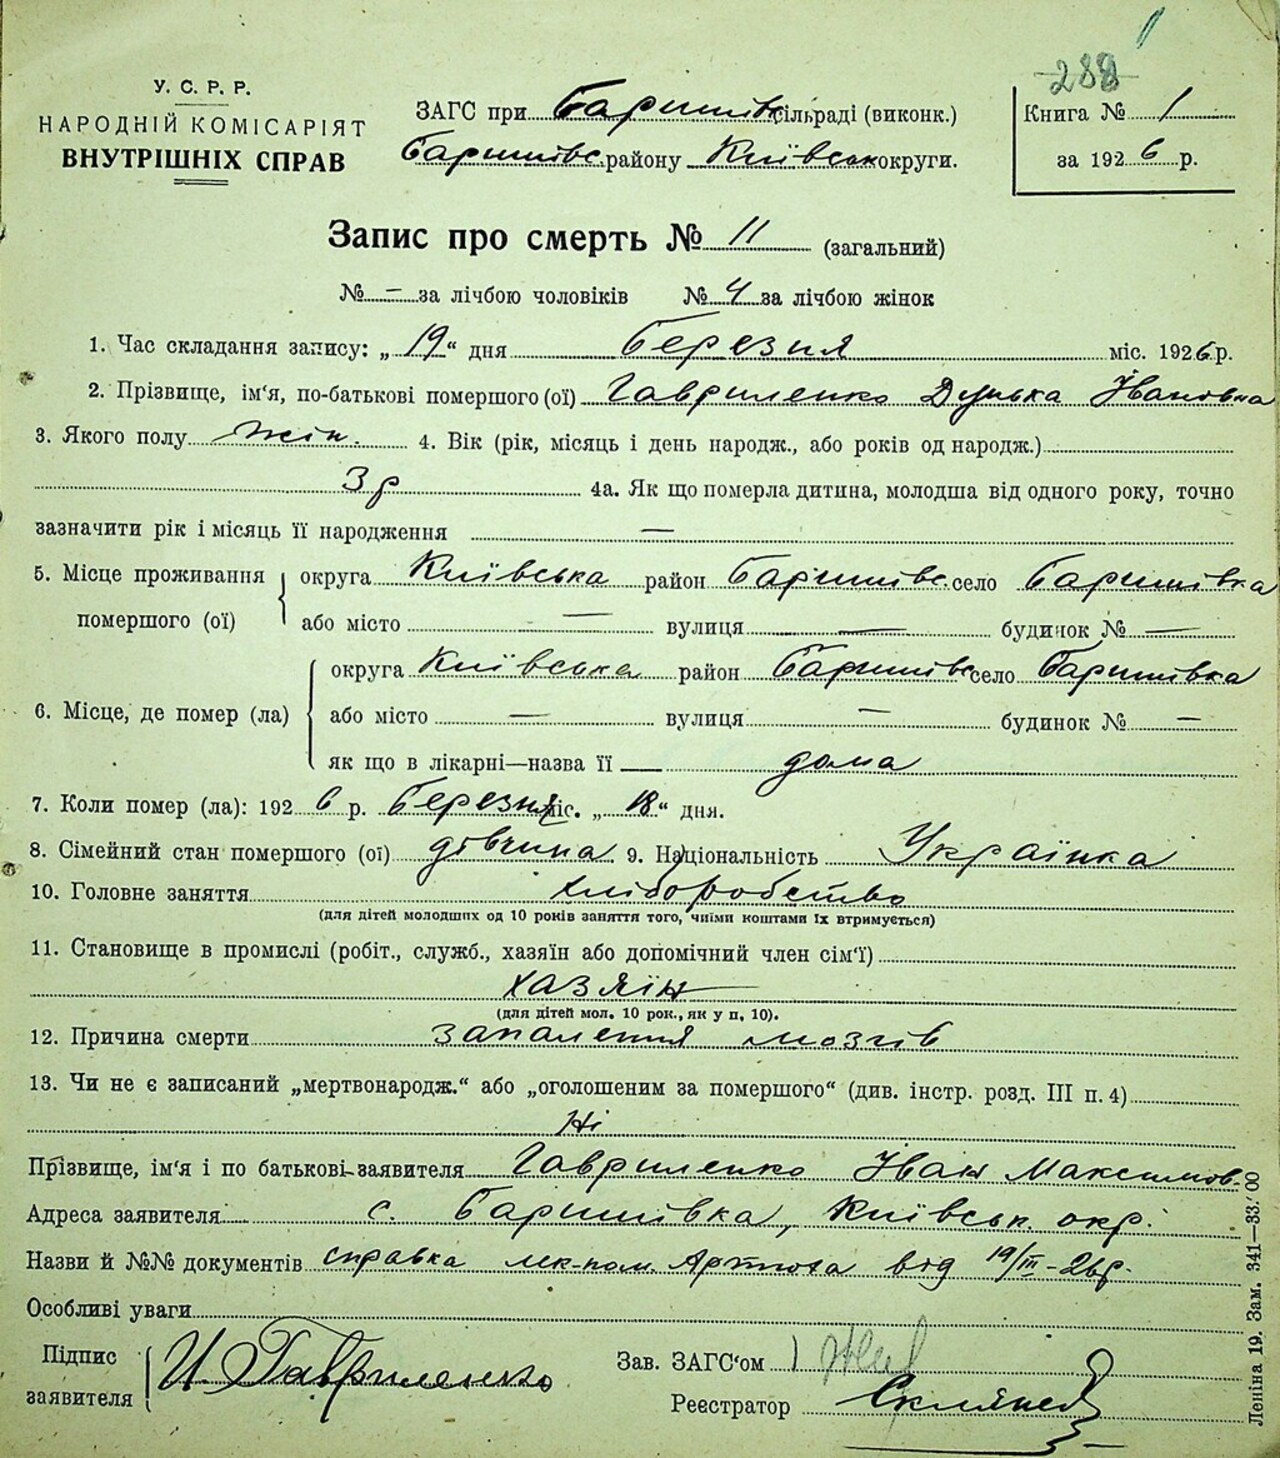 288
У. С. Р. Р.
НАРОДНІЙ КОМІСАРІЯТ
ВНУТРІШНІХ СПРАВ
ЗАГС при Баришівс. сільраді (виконк.)
Баришівс. району Київськ округи.
Книга № 1
за 1926 р.
Запис про смерть № 11 (загальний)
№ – за лічбою чоловіків № 4 за лічбою жінок
1. Час складання запису: „19“ дня березня міс. 1926 р.
2. Прізвище, ім'я, по-батькові помершого (ої) Гавриленко Дунька Івановна
3. Якого полу жін. 4. Вік (рік, місяць і день народж., або років од народж.)
3 р 4а. Як що померла дитина, молодша від одного року, точно
зазначити рік і місяць її народження —
5. Місце проживання помершого (ої) округа Київська район Баришівс. село Баришівка
або місто — вулиця — будинок № —
6. Місце, де помер (ла) округа Київська район Баришівс село Баришівка
або місто — вулиця — будинок № —
як що в лікарні—назва її — дома
7. Коли помер (ла): 1926 р. березня міс. „18“ дня.
8. Сімейний стан помершого (ої) дівчина 9. Національність Українка
10. Головне заняття хліборобство
(для дітей молодших од 10 років заняття того, чиїми коштами їх втримується)
11. Становище в промислі (робіт., служб., хазяїн або допомічний член сім'ї)
хазяїн
(для дітей мол. 10 рок., як у п. 10).
12. Причина смерти запалення мозгів
13. Чи не є записаний „мертвонародж.“ або „оголошеним за помершого“ (див. інстр. розд. III п. 4)
Ні
Прізвище, ім'я і по батькові заявителя Гавриленко Іван Максимов.
Адреса заявителя с. Баришівка, Київськ. окр.
Назви й №№ документів справка лік-пом. від 19/III-26р.
Особливі уваги
Підпис заявителя И. Гавриленко
Зав. ЗАГС'ом
Реєстратор
Леніна 19. Зам. 341—33.